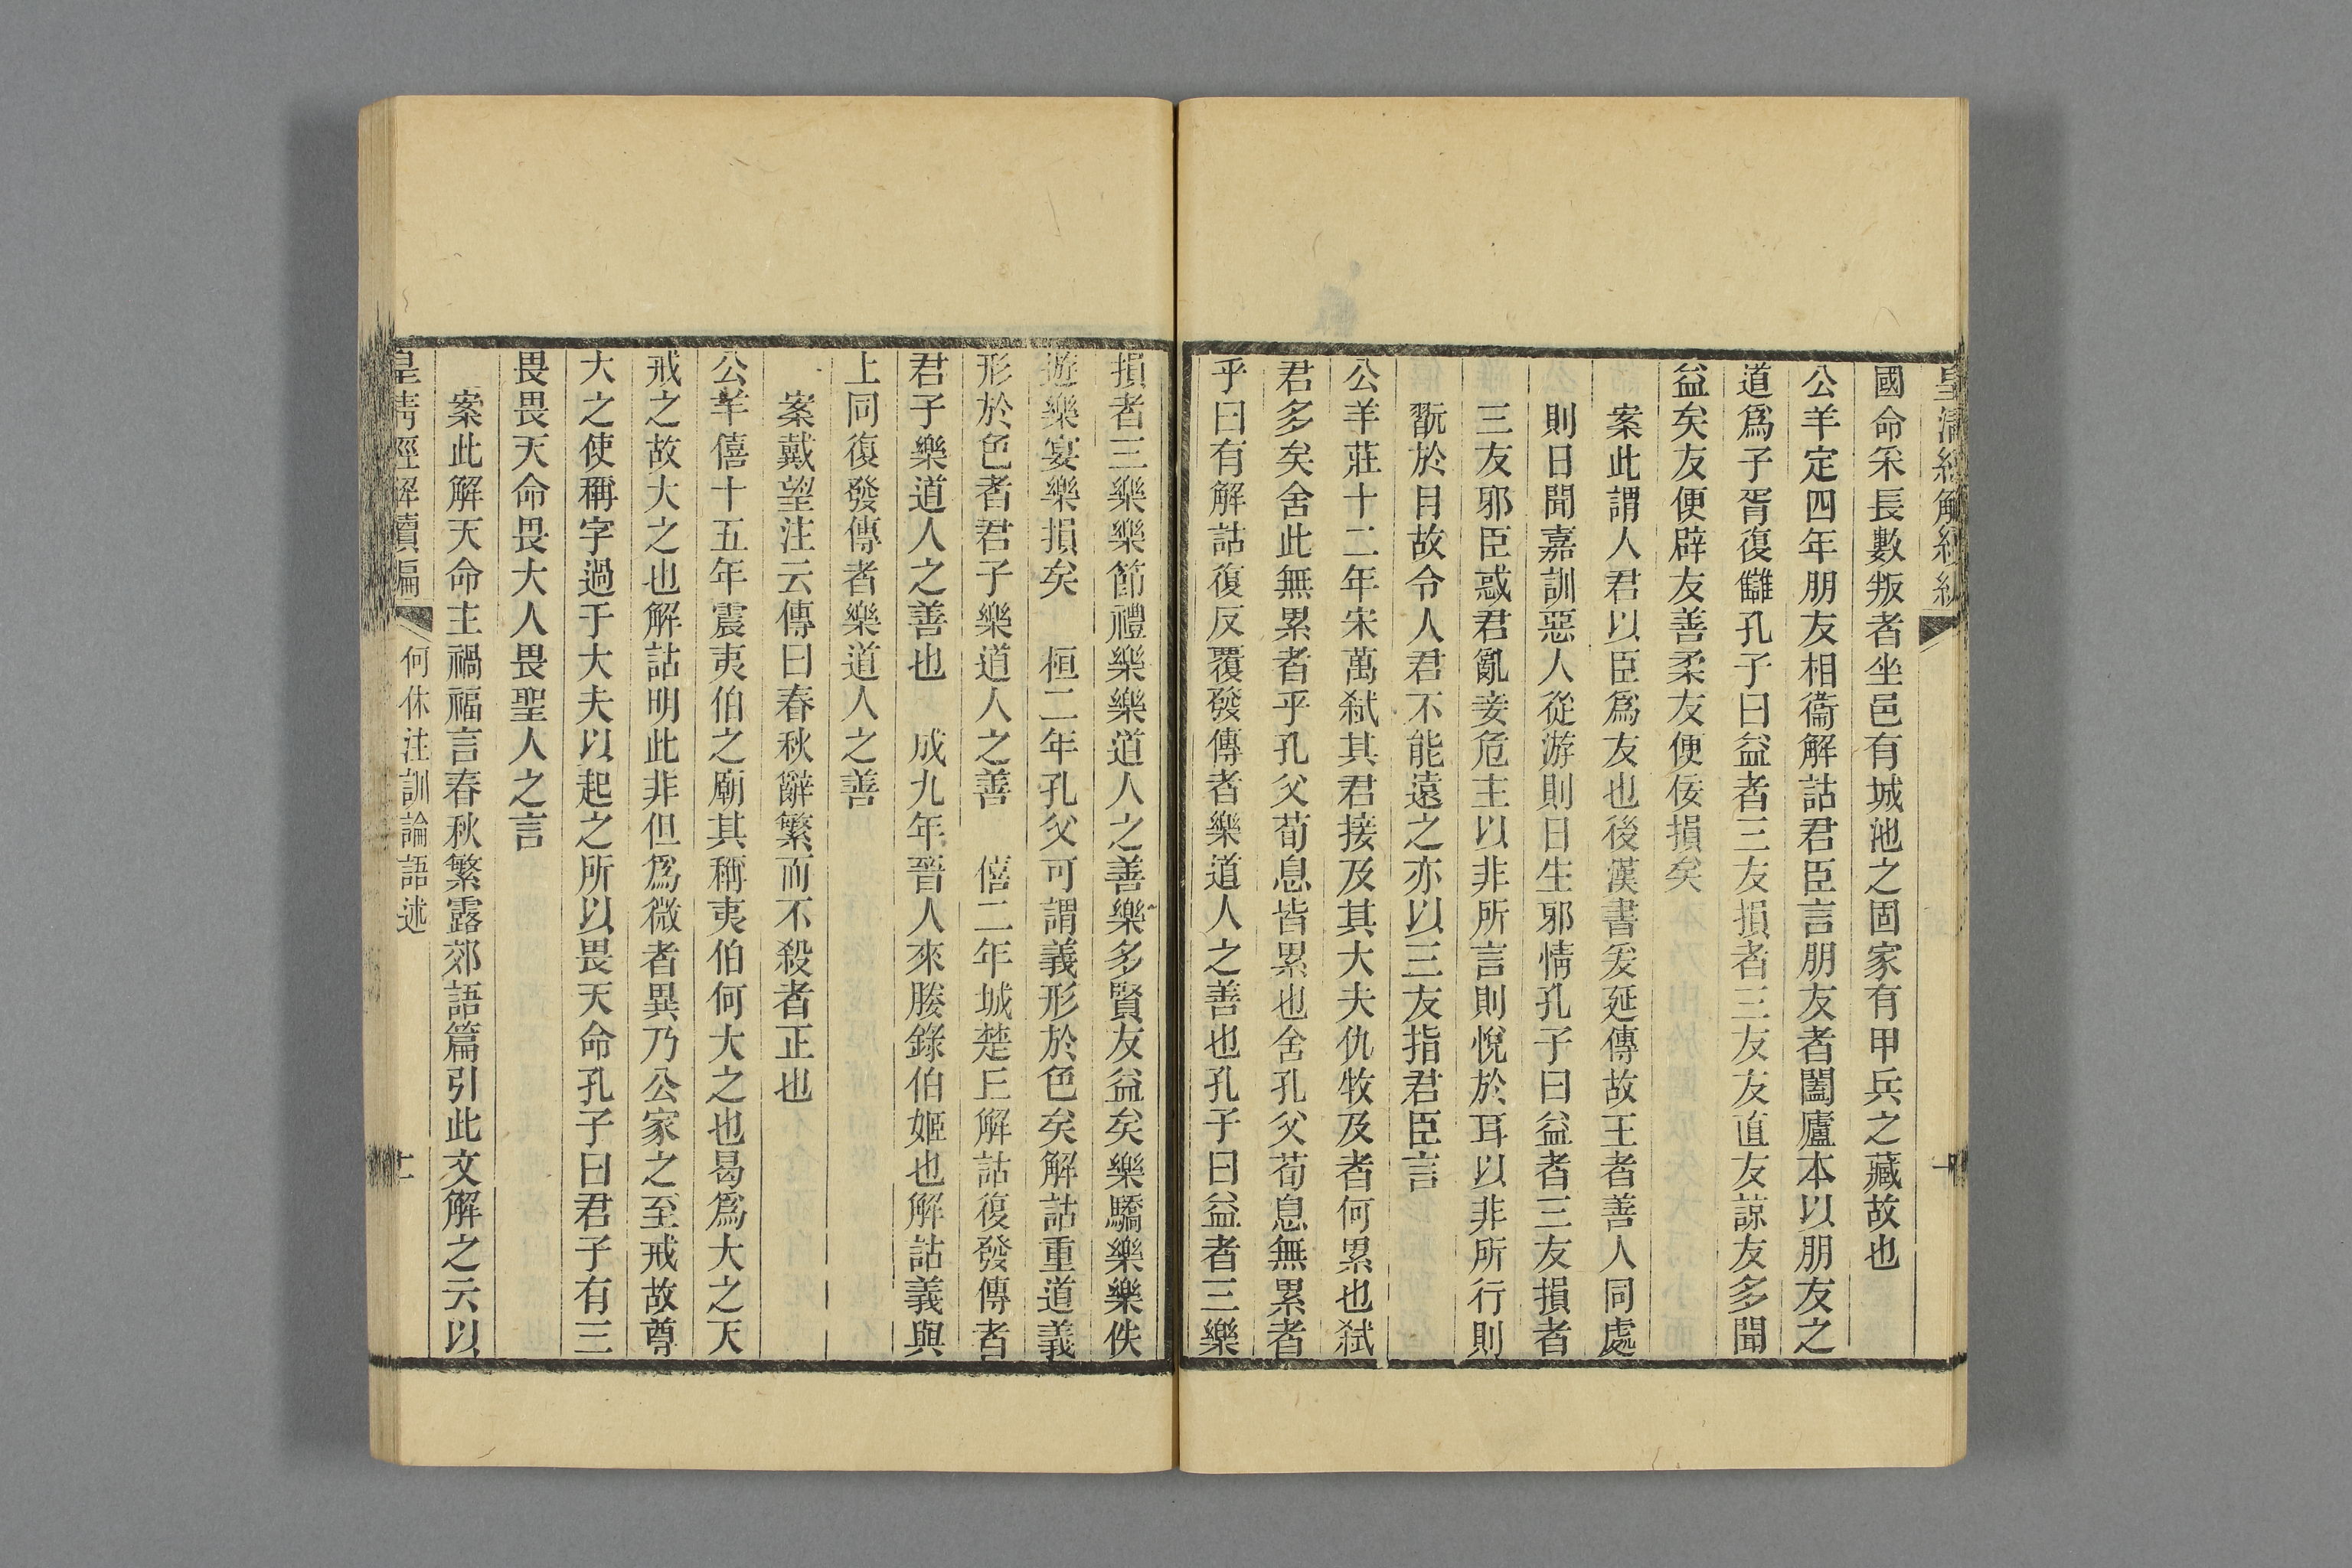 國命采長數叛者坐邑有城池之固家有甲兵之藏故也
公羊定四年朋友相衞解詁君臣言朋友者闔廬本以朋友之
道爲子胥復讎孔子曰益者三友損者三友友直友諒友多聞
益矣友便辟友善柔友便佞損矣
案此謂人君以臣爲友也後漢書爰延傳故王者善人同處
則日聞嘉訓惡人從游則日生邪情孔子曰益者三友損者
三友邪臣惑君亂妾危主以非所言則悅於耳以非所行則
翫於目故令人君不能遠之亦以三友指君臣言
公羊莊十二年宋萬弒其君接及其大夫仇牧及者何累也弒
君多矣舍此無累者乎孔父荀息皆累也舍孔父荀息無累者
乎曰有解詁復反覆發傳者樂道人之善也孔子曰益者三樂
損者三樂樂節禮樂樂道人之善樂多賢友益矣樂驕樂樂佚
遊樂宴樂損矣　桓二年孔父可謂義形於色矣解詁重道義
形於色者君子樂道人之善　僖二年城楚丘解詁復發傳者
君子樂道人之善也　成九年晉人來媵錄伯姬也解詁義與
上同復發傳者樂道人之善
案戴望注云傳曰春秋辭繁而不殺者正也
公羊僖十五年震夷伯之廟其稱夷伯何大之也曷爲大之天
戒之故大之也解詁明此非但爲微者異乃公家之至戒故尊
大之使稱字過于大夫以起之所以畏天命孔子曰君子有三
畏畏天命畏大人畏聖人之言
案此解天命主禍福言春秋繁露郊語篇引此文解之云以
皇清經解續編　何休注訓論語述　十一